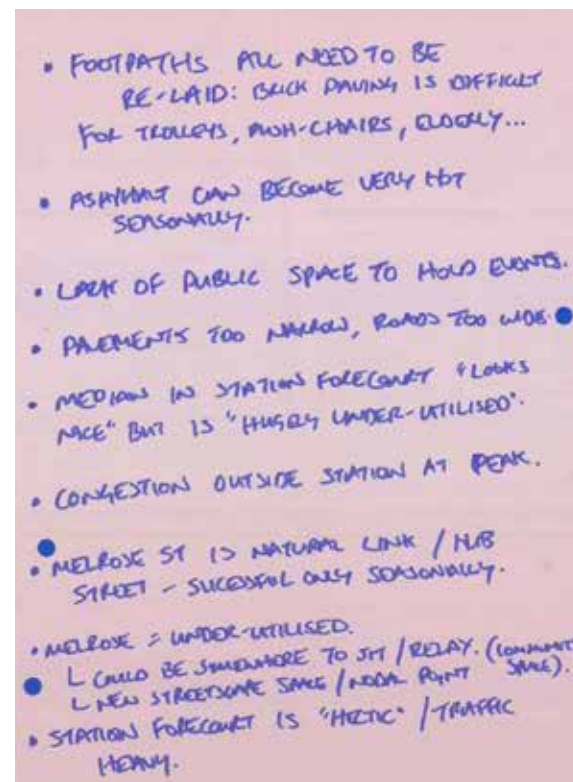 • FOOTPATHS ALL NEED TO BE
RE-LAID: BRICK PAVING IS DIFFICULT
FOR TROLLEYS, PUSH-CHAIRS, ELDERLY...
• ASHPHALT CAN BECOME VERY HOT
SEASONALLY.
• LACK OF PUBLIC SPACE TO HOLD EVENTS.
• PAVEMENTS TOO NARROW, ROADS TOO WIDE.
• MEDIAN IN STATION FORECOURT "LOOKS
NICE" BUT IS "HUGELY UNDER-UTILISED".
• CONGESTION OUTSIDE STATION AT PEAK.
• MELROSE ST IS NATURAL LINK / HUB
STREET - SUCESSFUL ONLY SEASONALLY.
• MELROSE = UNDER-UTILISED.
L COULD BE SOMEWHERE TO SIT / RELAX. (COMMUNITY
L NEW STREETSCAPE SPACE / NODAL POINT SPACE).
• STATION FORECOURT IS "HECTIC" / TRAFFIC
HEAVY.